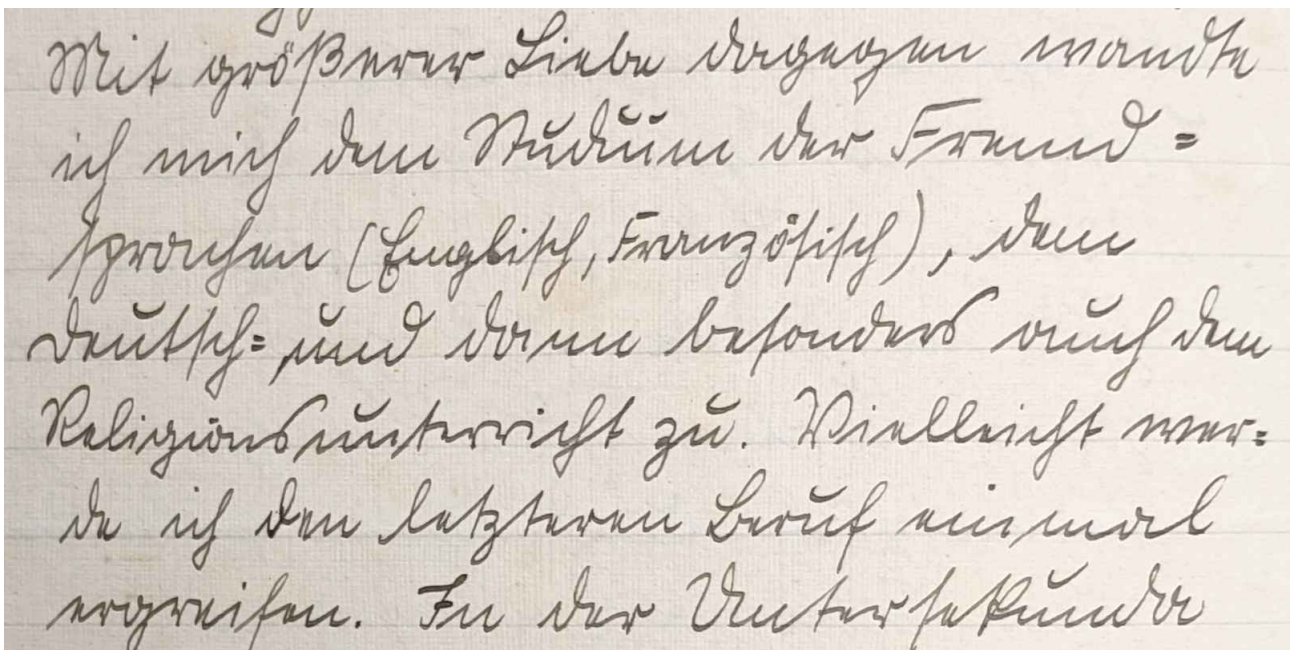 Mit größerer Liebe dagegen wandte
ich mich dem Studium der Fremd=
sprachen (Englisch, Französisch), dem
Deutsch= und dann besonders auch dem
Religionsunterricht zu. Vielleicht wer=
de ich den letzteren Beruf einmal
ergreifen. In der Untersekunda